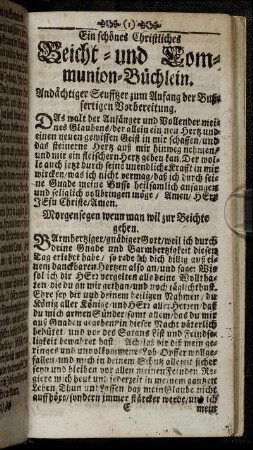 (1)
Ein schönes Christliches
Beicht- und Com-
munion-Büchlein.
Andächtiger Seufftzer zum Anfang der Buß-
fertigen Vorbereitung.
DAs walt der Anfänger und Vollender mei-
nes Glaubens/der allein ein neu Hertz und
einen neuen gewissen Geist in mir schaffen/und
das steinerne Hertz auß mir hinweg nehmen/
und mir ein fleischern Hertz geben kan. Der wol-
le auch jetzt durch seine unendliche Krafft in mir
wircken/was ich nicht vermag/daß ich durch sei-
ne Gnade meine Busse heilsamlich anfangen
und seliglich vollbringen möge/ Amen/ HErr
JEsu Christe/Amen.
Morgensegen wenn man wil zur Beichte
gehen.
BArmhertziger/gnädiger Gott/weil ich durch
deine Gnade und Barmhertzigkeit diesen
Tag erlebt habe/ so rede ich dich billig auß
danckbarem Hertzen also an/und sage: Wie
sol ich dir HErr vergelten alle deine Wolthaten/
die du an mir gethan/und noch täglich thust.
Ehre sey dir und deinem heiligen Nahmen/ du
König aller Könige/und HErr aller Herren/daß
du mich armen Sünder sonst allem/das du mir
auß Gnaden diese Nacht väterlich
behütet/ und vor des Satans List und Feindse-
ligkeit bewahret hast. Ach laß dir diß mein ge-
ringes und unvollkommene Lob-Opffer wolge-
fallen/und mich in deinem Schutz allezeit sicher
seyn und bleiben vor allen meinen Feinden. Re-
giere mich heut und jederzeit in meinem gantzen
Leben/Thun und Lassen/daß mein Glaube nicht
auffhöre/sondern immer stärcker werde/und ich
E mein